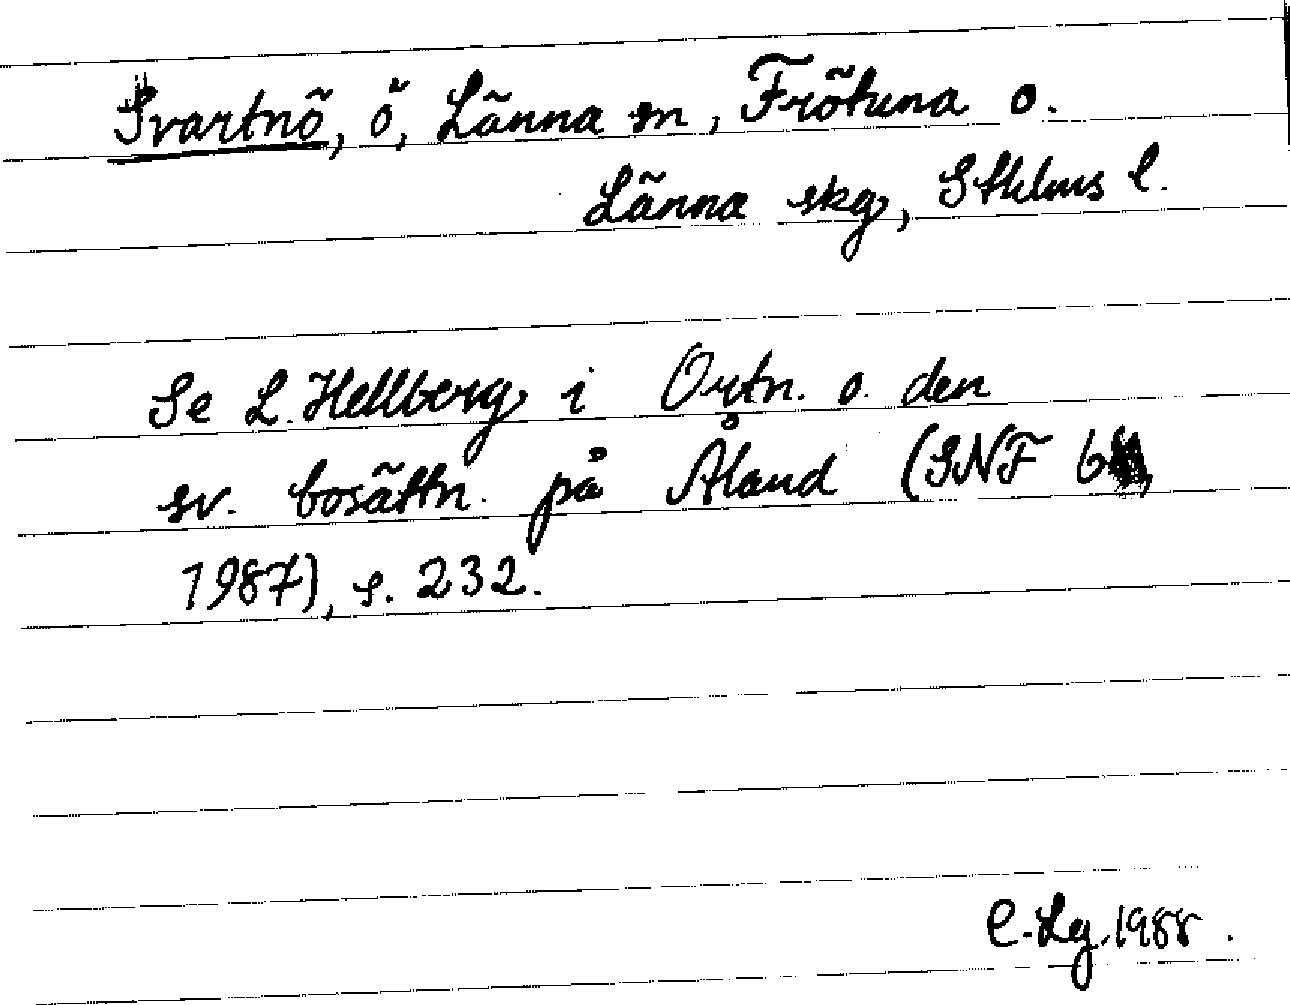 Svartnö, ö, Länna sn, Frötuna o.
Länna skg, Sthlms l.
Se L. Hellberg i Ortn. o. den
sv. bosättn. på Åland (SNF 6
1987), s. 232.
C. Lg. 1988.